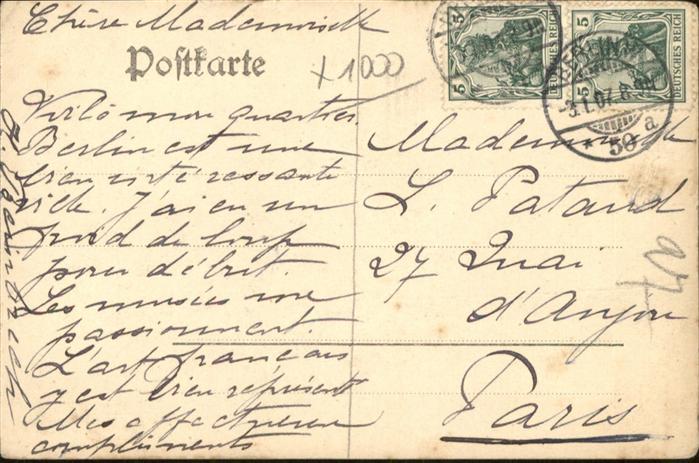 Chère Mademoiselle
Postkarte
+ 1000
Voilà mon quartier.
Berlin est une
bien intéressante
ville. J'ai eu un
froid de loup
pour début.
Les musées me
passionnent.
L'art français
y est bien représenté
Mes affectueux
compliments
Mademoiselle
L. Pataud
27 Quai
d'Anjou
Paris
5
5
DEUTSCHES REICH
5
5
DEUTSCHES REICH
BERLIN
3.1.07. 8
50 a